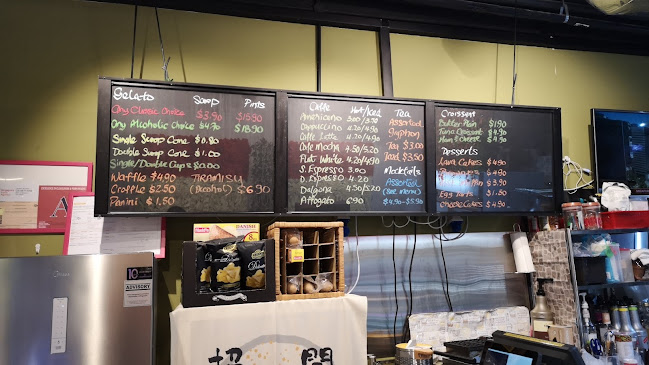 Gelato Scoop Pints
Any Classic Choice $3.90 $15.90
Any Alcoholic Choice $4.90 $18.90
Single Scoop Cone $0.80
Double Scoop Cone $1.00
Single/Double Cups
Waffle $4.90
Croffle $2.50
Panini $1.50
TIRAMISU
(Alcohol) $6.90
Coffee Hot/Iced
Americano 3.00/3.90
Cappuccino 4.20/4.90
Caffe Latte 4.20/4.90
Cafe Mocha 4.50/5.20
Flat White 4.20/4.90
S. Espresso 3.00
D. Espresso 4.20
Dalgona 4.50/5.20
Affogato 6.90
Tea
Assorted
Gryphon
Tea $3.00
Iced $3.50
Mocktails
Assorted
(see menu)
$4.90-$5.90
Croissant
Butter Plain $1.90
Tuna Croissant $4.90
Ham & Cheese $4.90
Desserts
Lava Cakes $4.90
Egg Tarts $1.50
Cheese Cakes $4.90
Midea
10
ADVISORY
A
DANISH
招
開